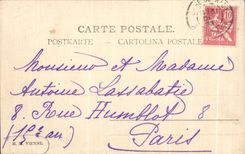 CARTE POSTALE.
POSTKARTE — CARTOLINA POSTALE
Monsieur et Madame
Antoine Lassabatie
8. Rue Humblot 8
(15e arr)
Paris
VIENNE.